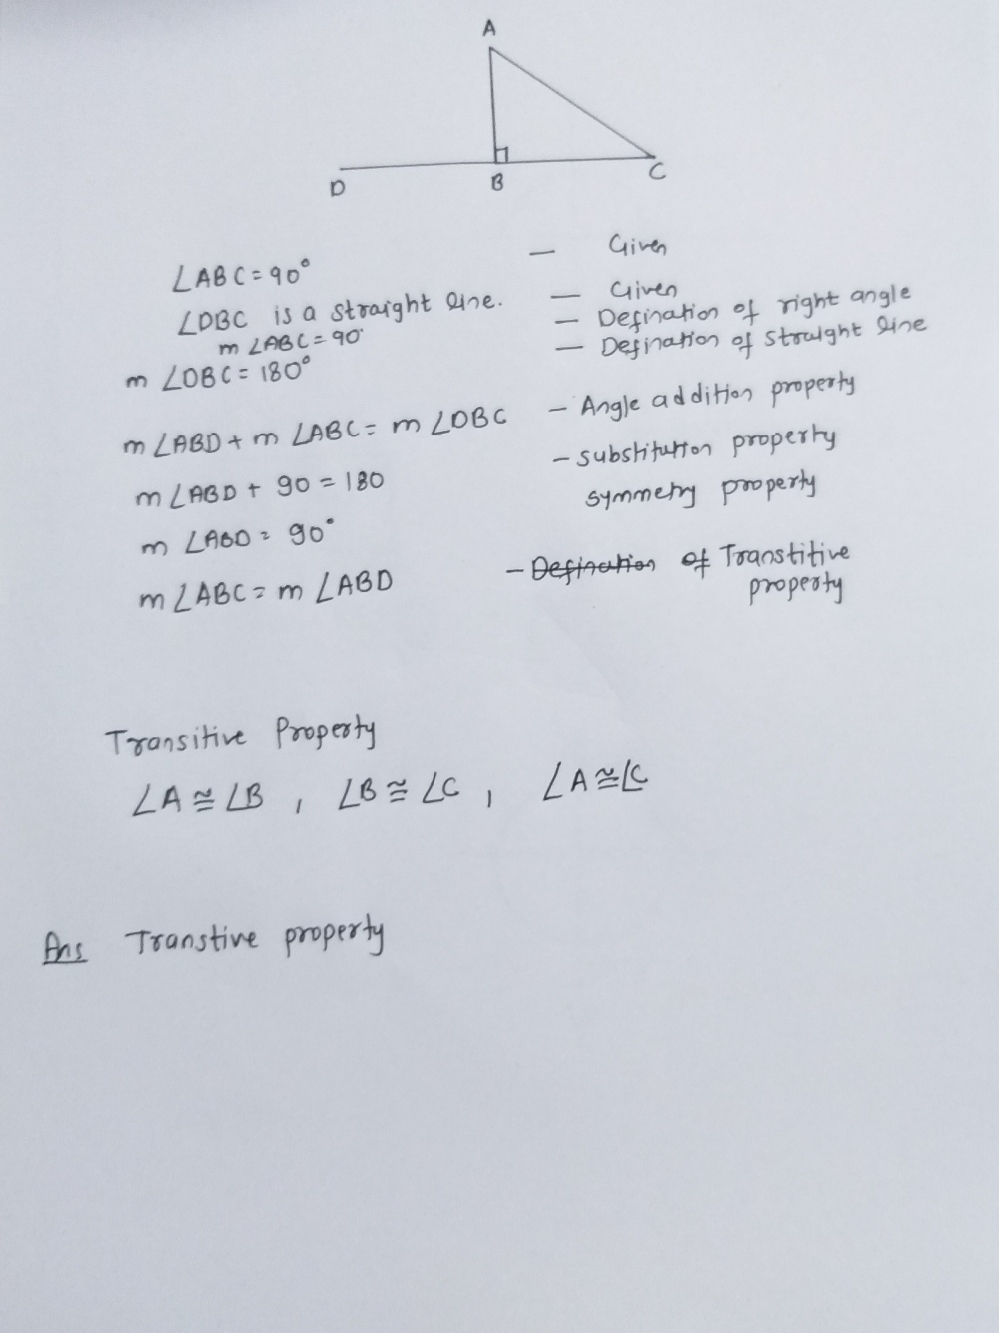 A
D
B
C
∠ABC = 90° — Given
∠DBC is a straight line. — Given
m ∠ABC = 90° — Defination of right angle
m ∠DBC = 180° — Defination of straight line
m ∠ABD + m ∠ABC = m ∠DBC – Angle addition property
m ∠ABD + 90 = 180 – substitution property
m ∠ABD = 90° symmetry property
m ∠ABC = m ∠ABD – Defination of Transtitive
property
Transitive Property
∠A ≅ ∠B , ∠B ≅ ∠C , ∠A ≅ ∠C
Ans Transtive property